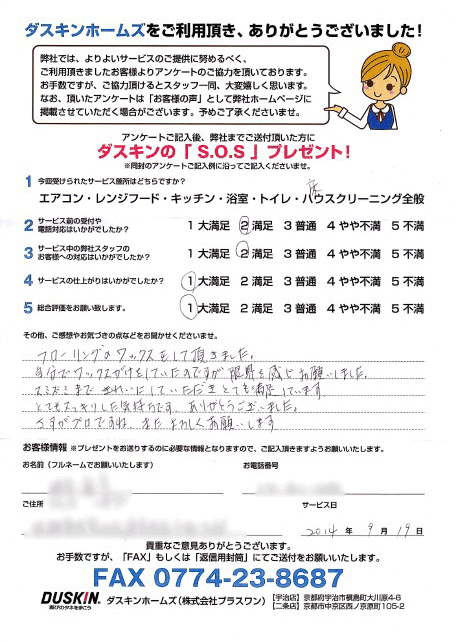 ダスキンホームズをご利用頂き、ありがとうございました!
弊社では、よりよいサービスのご提供に努めるべく、
ご利用頂きましたお客様よりアンケートのご協力を頂いております。
お手数ですが、ご協力頂けるとスタッフ一同、大変嬉しく思います。
なお、頂いたアンケートは「お客様の声」として弊社ホームページに
掲載させていただく場合がございます。予めご了承くださいませ。
アンケートご記入後、弊社までご送付頂いた方に
ダスキンの「 S.O.S 」プレゼント!
※同封のアンケートご記入例に沿ってご記入くださいませ。
1 今回受けられたサービス箇所はどちらですか?
床
エアコン・レンジフード・キッチン・浴室・トイレ・ハウスクリーニング全般
2 サービス前の受付や電話対応はいかがでしたか? 1 大満足 2 満足 3 普通 4 やや不満 5 不満
3 サービス中の弊社スタッフのお客様への対応はいかがでしたか? 1 大満足 2 満足 3 普通 4 やや不満 5 不満
4 サービスの仕上がりはいかがでしたか? 1 大満足 2 満足 3 普通 4 やや不満 5 不満
5 総合評価をお願い致します。 1 大満足 2 満足 3 普通 4 やや不満 5 不満
その他、ご感想やお気づきの点などをお聞かせくださいませ。
フローリングのワックスをして頂きました。
自分でワックスがけをしていたのですが限界を感じお願いしました。
スミズミまできれいにしていただきとても満足しています。
とてもスッキリした気持ちです。ありがとうございました。
さすがプロですね。またよろしくお願いします
お客様情報 ※プレゼントをお送りするのに必要な情報となりますので、ご記入頂けますようお願いいたします。
お名前(フルネームでお願いいたします)
お電話番号
ご住所
サービス日
2014 年 9 月 19 日
貴重なご意見ありがとうございます。
お手数ですが、「FAX」もしくは「返信用封筒」にてご送付をお願いいたします。
FAX 0774-23-8687
DUSKIN 喜びのタネをまこう
ダスキンホームズ(株式会社プラスワン)
【宇治店】京都府宇治市槇島町大川原4-6
【二条店】京都市中京区西ノ京原町105-2